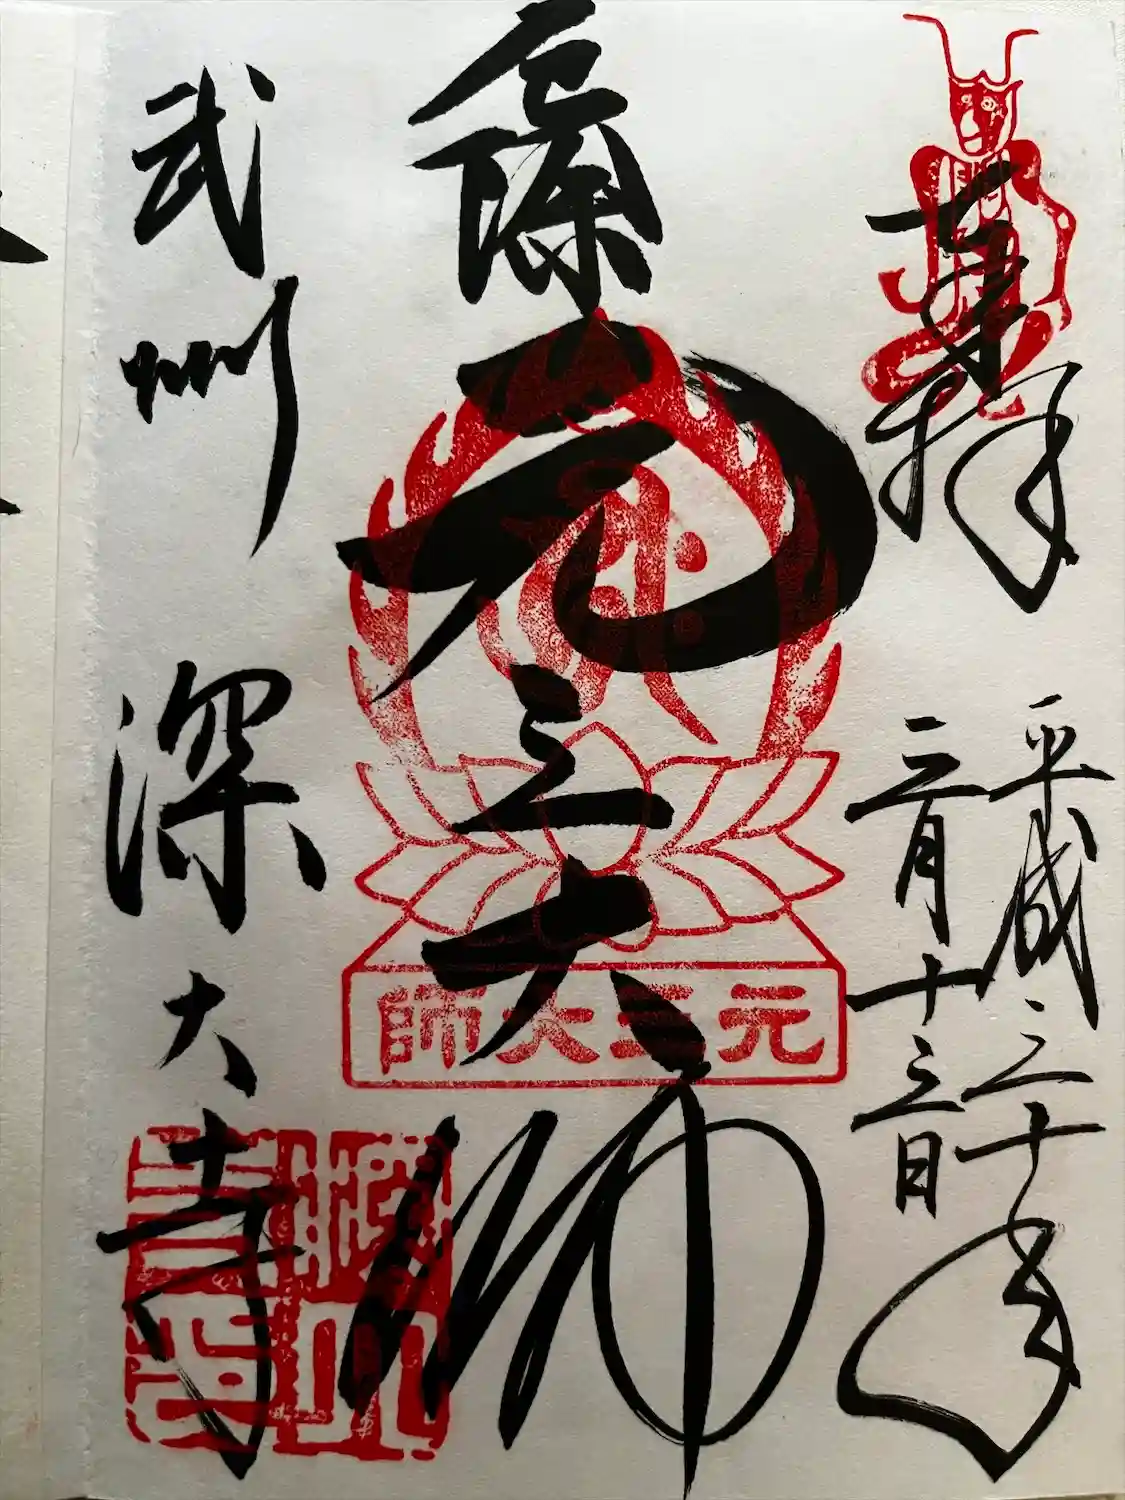 奉拝
平成三十年
三月十三日
元三大師
元三大師
武州 深大寺